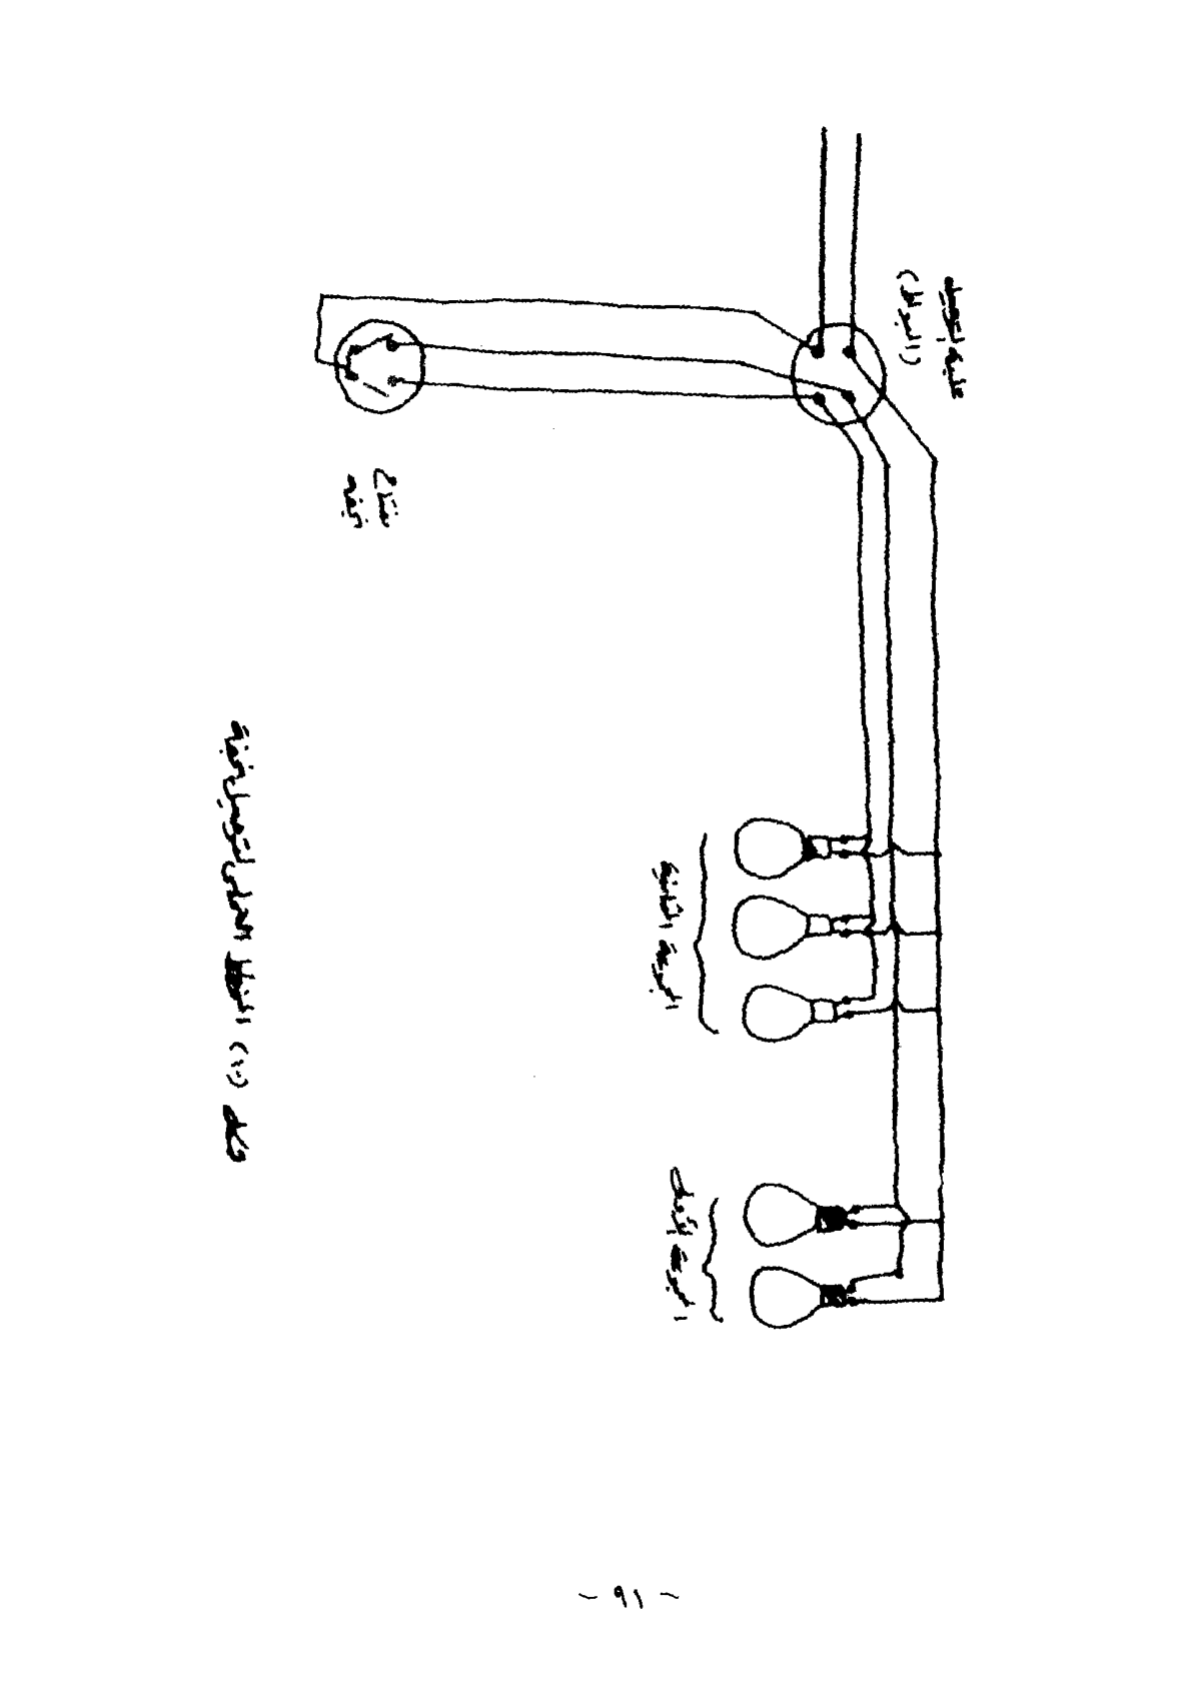 علبة التوصيل
(البواط)
مفتاح
نجفه
المجموعة الثانية
المجموعة الأولى
شكل (١٠) التخطيط العملى لتوصيل نجفة
- ٩١ -